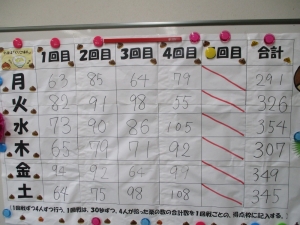 1回目 2回目 3回目 4回目 5回目 合計
月 63 85 64 79 291
火 82 91 98 55 326
水 73 90 86 105 354
木 65 79 71 92 307
金 94 92 64 99 349
土 64 75 98 108 345
1回戦ずつ4人ずつ行う。1回戦は、30秒ずつ。4人が拾った栗の数の合計数を1回戦ごとの、得点枠に記入する。